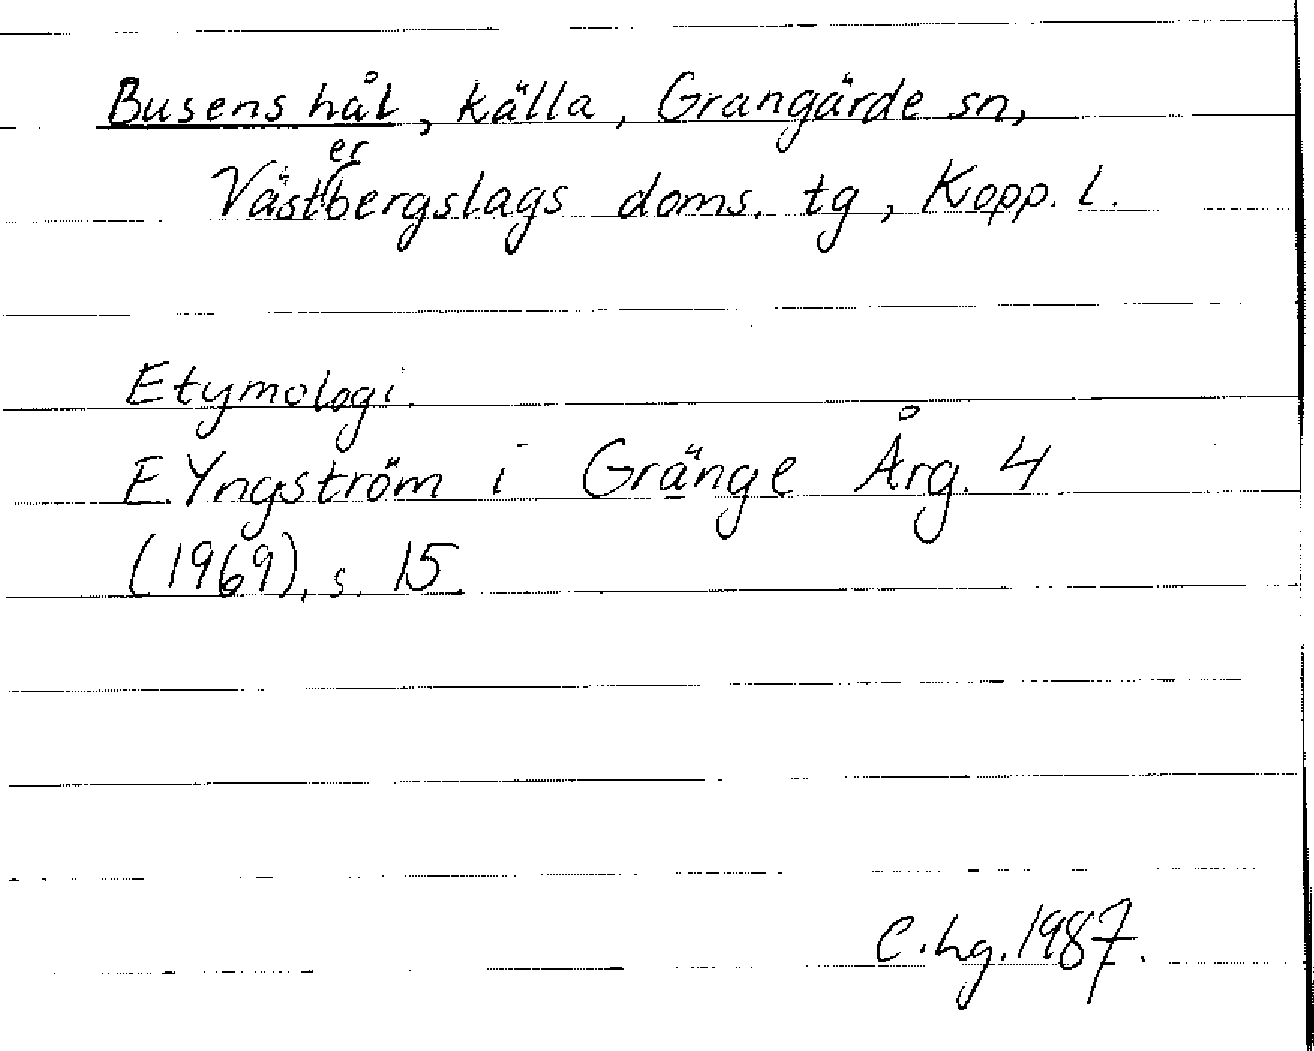 Busens hål, källa, Grangärde sn,
Västerbergslags doms. tg, Kopp. l.
Etymologi.
E. Yngström i Gränge Årg. 4
(1969), s. 15.
C. hg. 1987.